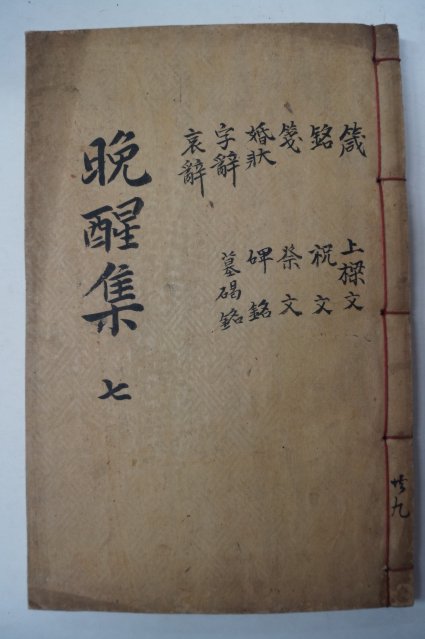 晩醒集
七
箴
銘
箋
婚狀
字辭
哀辭
上樑文
祝文
祭文
碑銘
墓碣銘
共九